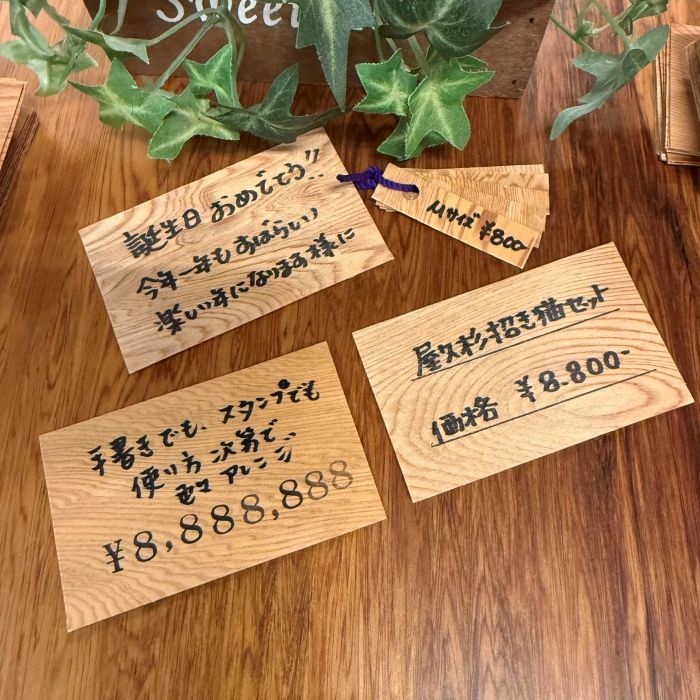 Sweet
誕生日 おめでとう!!
今年一年も すばらしい
楽しい年になります様に
Mサイズ ¥800-
屋久杉招き猫セット
価格 ¥8.800-
手書きでも、スタンプでも
使い方 次第で
色々 アレンジ
¥8,888,888